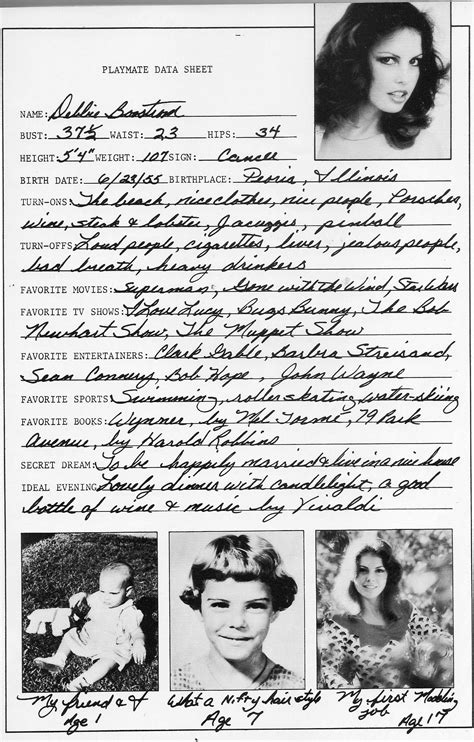 PLAYMATE DATA SHEET
NAME: Debbie Boostrom
BUST: 37½ WAIST: 23 HIPS: 34
HEIGHT: 5'4" WEIGHT: 107 SIGN: Cancer
BIRTH DATE: 6/23/55 BIRTHPLACE: Peoria, Illinois
TURN-ONS: The beach, nice clothes, nice people, Porsches,
wine, steak & lobster, Jacuzzis, pinball
TURN-OFFS: Loud people, cigarettes, liver, jealous people,
bad breath, heavy drinkers
FAVORITE MOVIES: Superman, Gone with the Wind, Star Wars
FAVORITE TV SHOWS: I Love Lucy, Bugs Bunny, The Bob
Newhart Show, The Muppet Show
FAVORITE ENTERTAINERS: Clark Gable, Barbra Streisand,
Sean Connery, Bob Hope, John Wayne
FAVORITE SPORTS: Swimming, roller skating, water-skiing
FAVORITE BOOKS: Wynner, by Mel Tormé, 79 Park
Avenue, by Harold Robbins
SECRET DREAM: To be happily married & live in a nice house
IDEAL EVENING: Lovely dinner with candlelight, a good
bottle of wine & music by Vivaldi
My friend & I
Age 1
What a nifty hair style
Age 7
My first Modeling
job Age 17